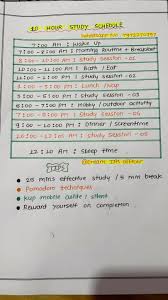 10 HOUR STUDY SCHEDULE
7:00 AM : Wake up
7:00 - 8:00 AM : Morning Routine + Breakfast
8:00 - 10:00 AM : Study Session - 01
10:00 - 11:00 AM : Bath / Eat
11:00 - 2:00 PM : Study Session - 02
2:00 - 3:00 PM : Lunch / Nap
3:00 - 6:00 PM : Study Session - 03
6:00 - 7:00 PM : Hobby / Outdoor activity
7:00 - 9:00 PM : Study Session - 04
9:00 - 10:00 PM : Dinner / Screentime
10:00 - PM : Study Session - 05
12:10 AM : Sleep time
TIPS
@dream IPS officer
25 mins effective study / 5 min break
Pomodoro techniques
Keep mobile aside / silent
Reward yourself on completion